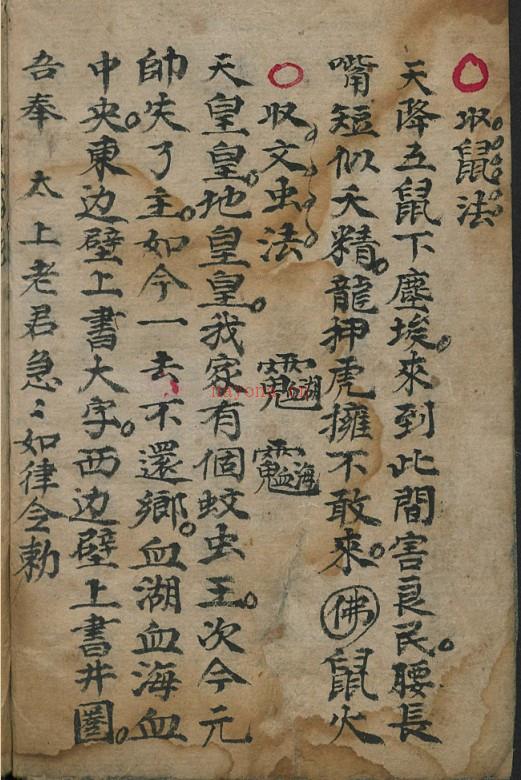 収鼠法
天降五鼠下塵埃。來到此間害良民。腰長
嘴短似夭精。龍押虎擁不敢來。佛鼠火
収文虫法
天皇皇。地皇皇。我家有個蚊虫王。次今元
帥失了主。如今一去不還鄉。血湖血海血
中央。東边壁上書大字。西边壁上書井圈。
吾奉 太上老君急〻如律令勅
nayona.cn